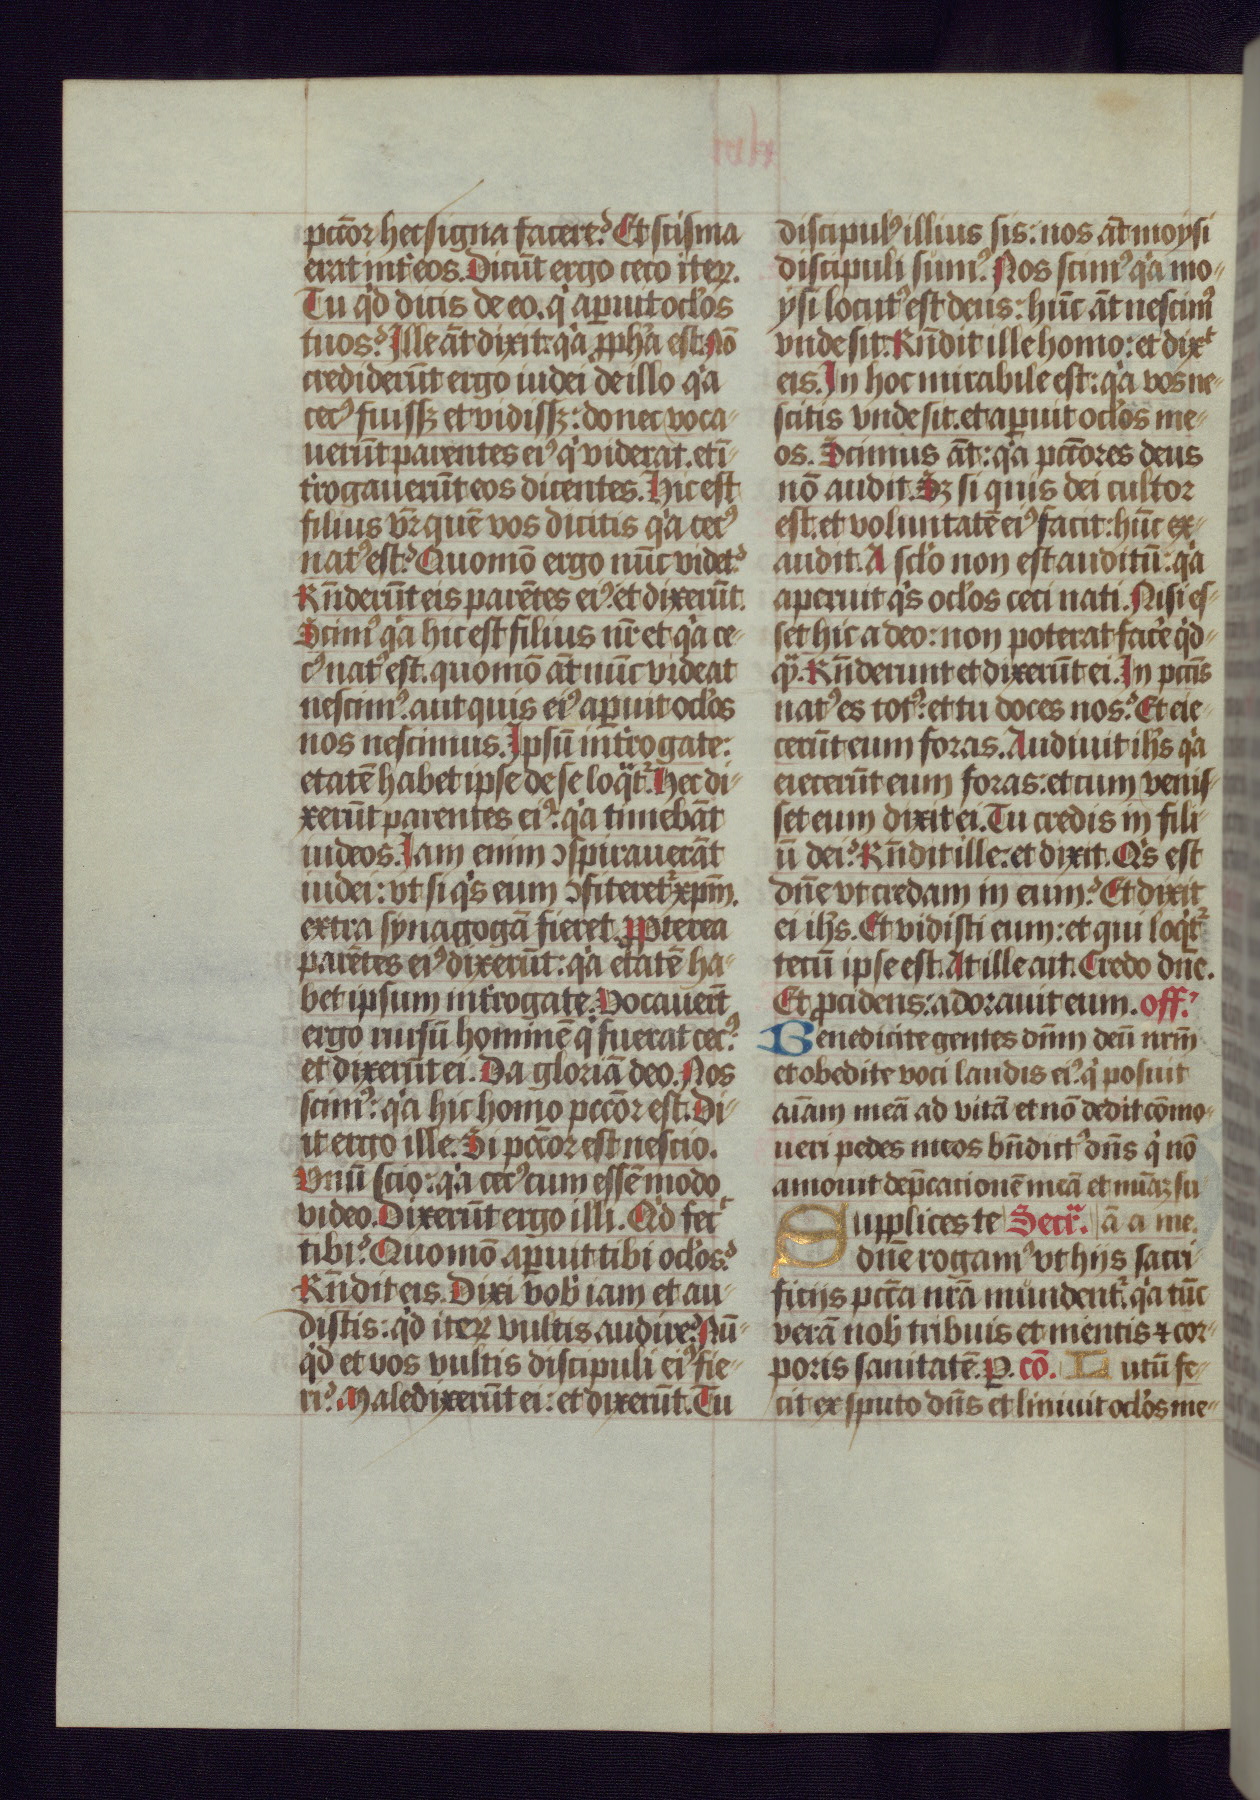 pctōr hec signa facere? Et scisma
erat int̄ eos. Dicūt ergo ceco iterꝝ.
Tu qd̓ dicis de eo. qͥ aꝑuit ocl̓os
tuos? Ille āt dixit: qͥa ꝓph̄a est. Nō
crediderūt ergo iudei de illo qͥa
cecꝰ fuissꝫ et vidissꝫ: donec voca-
uerūt parentes eiꝰ qͥ viderat. et ī-
t̓rogauerūt eos dicentes. Hic est
filius vr̄ quē vos dicitis qͥa cecꝰ
natꝰ est? Quomō ergo nūc videt?
Rn̄derūt eis parētes eiꝰ: et dixerūt.
Scimꝰ qͥa hic est filius nr̄ et qͥa ce-
cꝰ natꝰ est. quomō āt nūc videat
nescimꝰ. aut quis eiꝰ aꝑuit ocl̓os
nos nescimus. Ipsū int̓rogate:
etatē habet ipse de se loqᷓtᷣ. Hec di-
xerūt parentes eiꝰ: qͥa timebāt
iudeos. Iam enim ꝯspirauerāt
iudei: vt si qͥs eum ꝯfiteretᷣ xp̄m.
extra synagogā fieret. ꝓpterea
parētes eiꝰ dixerūt: qͥa etatē ha-
bet ipsum int̓rogate. Vocauert̄
ergo rursū hominē qͥ fuerat cecꝰ:
et dixerūt ei. Da gloriā deo. Nos
scimꝰ: qͥa hic homo pctōr est. Di-
it ergo ille. Si pctōr est nescio.
Vnū scio: qͥa cecꝰ cum essē modo
video. Dixerūt ergo illi. Qͥd fecͭ
tibi? Quomō aꝑuit tibi ocl̓os?
Rn̄dit eis. Dixi vob̓ iam et au-
distis: qͥd iterꝝ vultis audire? Nū-
qͥd et vos vultis discipuli eiꝰ fie-
ri? Maledixerūt ei: et dixerūt. Tu
discipulꝰ illius sis: nos āt moysi
discipuli sumꝰ. Nos scimꝰ qͥa mo-
ysi locutꝰ est deus: hūc āt nescimꝰ
vnde sit. Rn̄dit ille homo: et dixͭ
eis. In hoc mirabile est: qͥa vos ne-
scitis vnde sit. et aꝑuit ocl̓os me-
os. Scimus āt: qͥa pctōres deus
nō audit. Sꝫ si quis dei cultor
est. et voluntatē eiꝰ facit: hūc ex-
audit. A scl̓o non est auditū: qͥa
aperuit qͥs ocl̓os ceci nati. Nisi es-
set hic a deo: non poterat fac̓e qͥd-
qᷓ. Rn̄derunt et dixerūt ei. In pctīs
natꝰ es totꝰ: et tu doces nos? Et eie-
cerūt eum foras. Audiuit ih̄s qͥa
eiecerūt eum foras: et cum venis-
set eum dixit ei. Tu credis in fili-
ū dei? Rn̄dit ille: et dixit. Qͥs est
dn̄e vt credam in eum? Et dixit
ei ih̄s. Et vidisti eum: et qui loqͥtᷣ
tecū ipse est. At ille ait. Credo dn̄e.
Et ꝓcidens: adorauit eum. off̓.
Benedicite gentes dn̄m deū nrm̄
et obedite voci laudis eiꝰ. qͥ posuit
aīam meā ad vitā et nō dedit cōmo-
ueri pedes meos bn̄dictꝰ dn̄s qͥ nō
amouit dep̄cationē meā et mīaꝫ su
Supplices te Secrᷓ. ā a me.
dn̄e rogamꝰ vt hijs sacri-
ficijs pctā nrā mūdentᷣ. qͥa tūc
verā nob̓ tribuis et mentis ⁊ cor-
poris sanitatē. P. cō. Lutū fe-
cit ex sputo dn̄s et liniuit ocl̓os me-